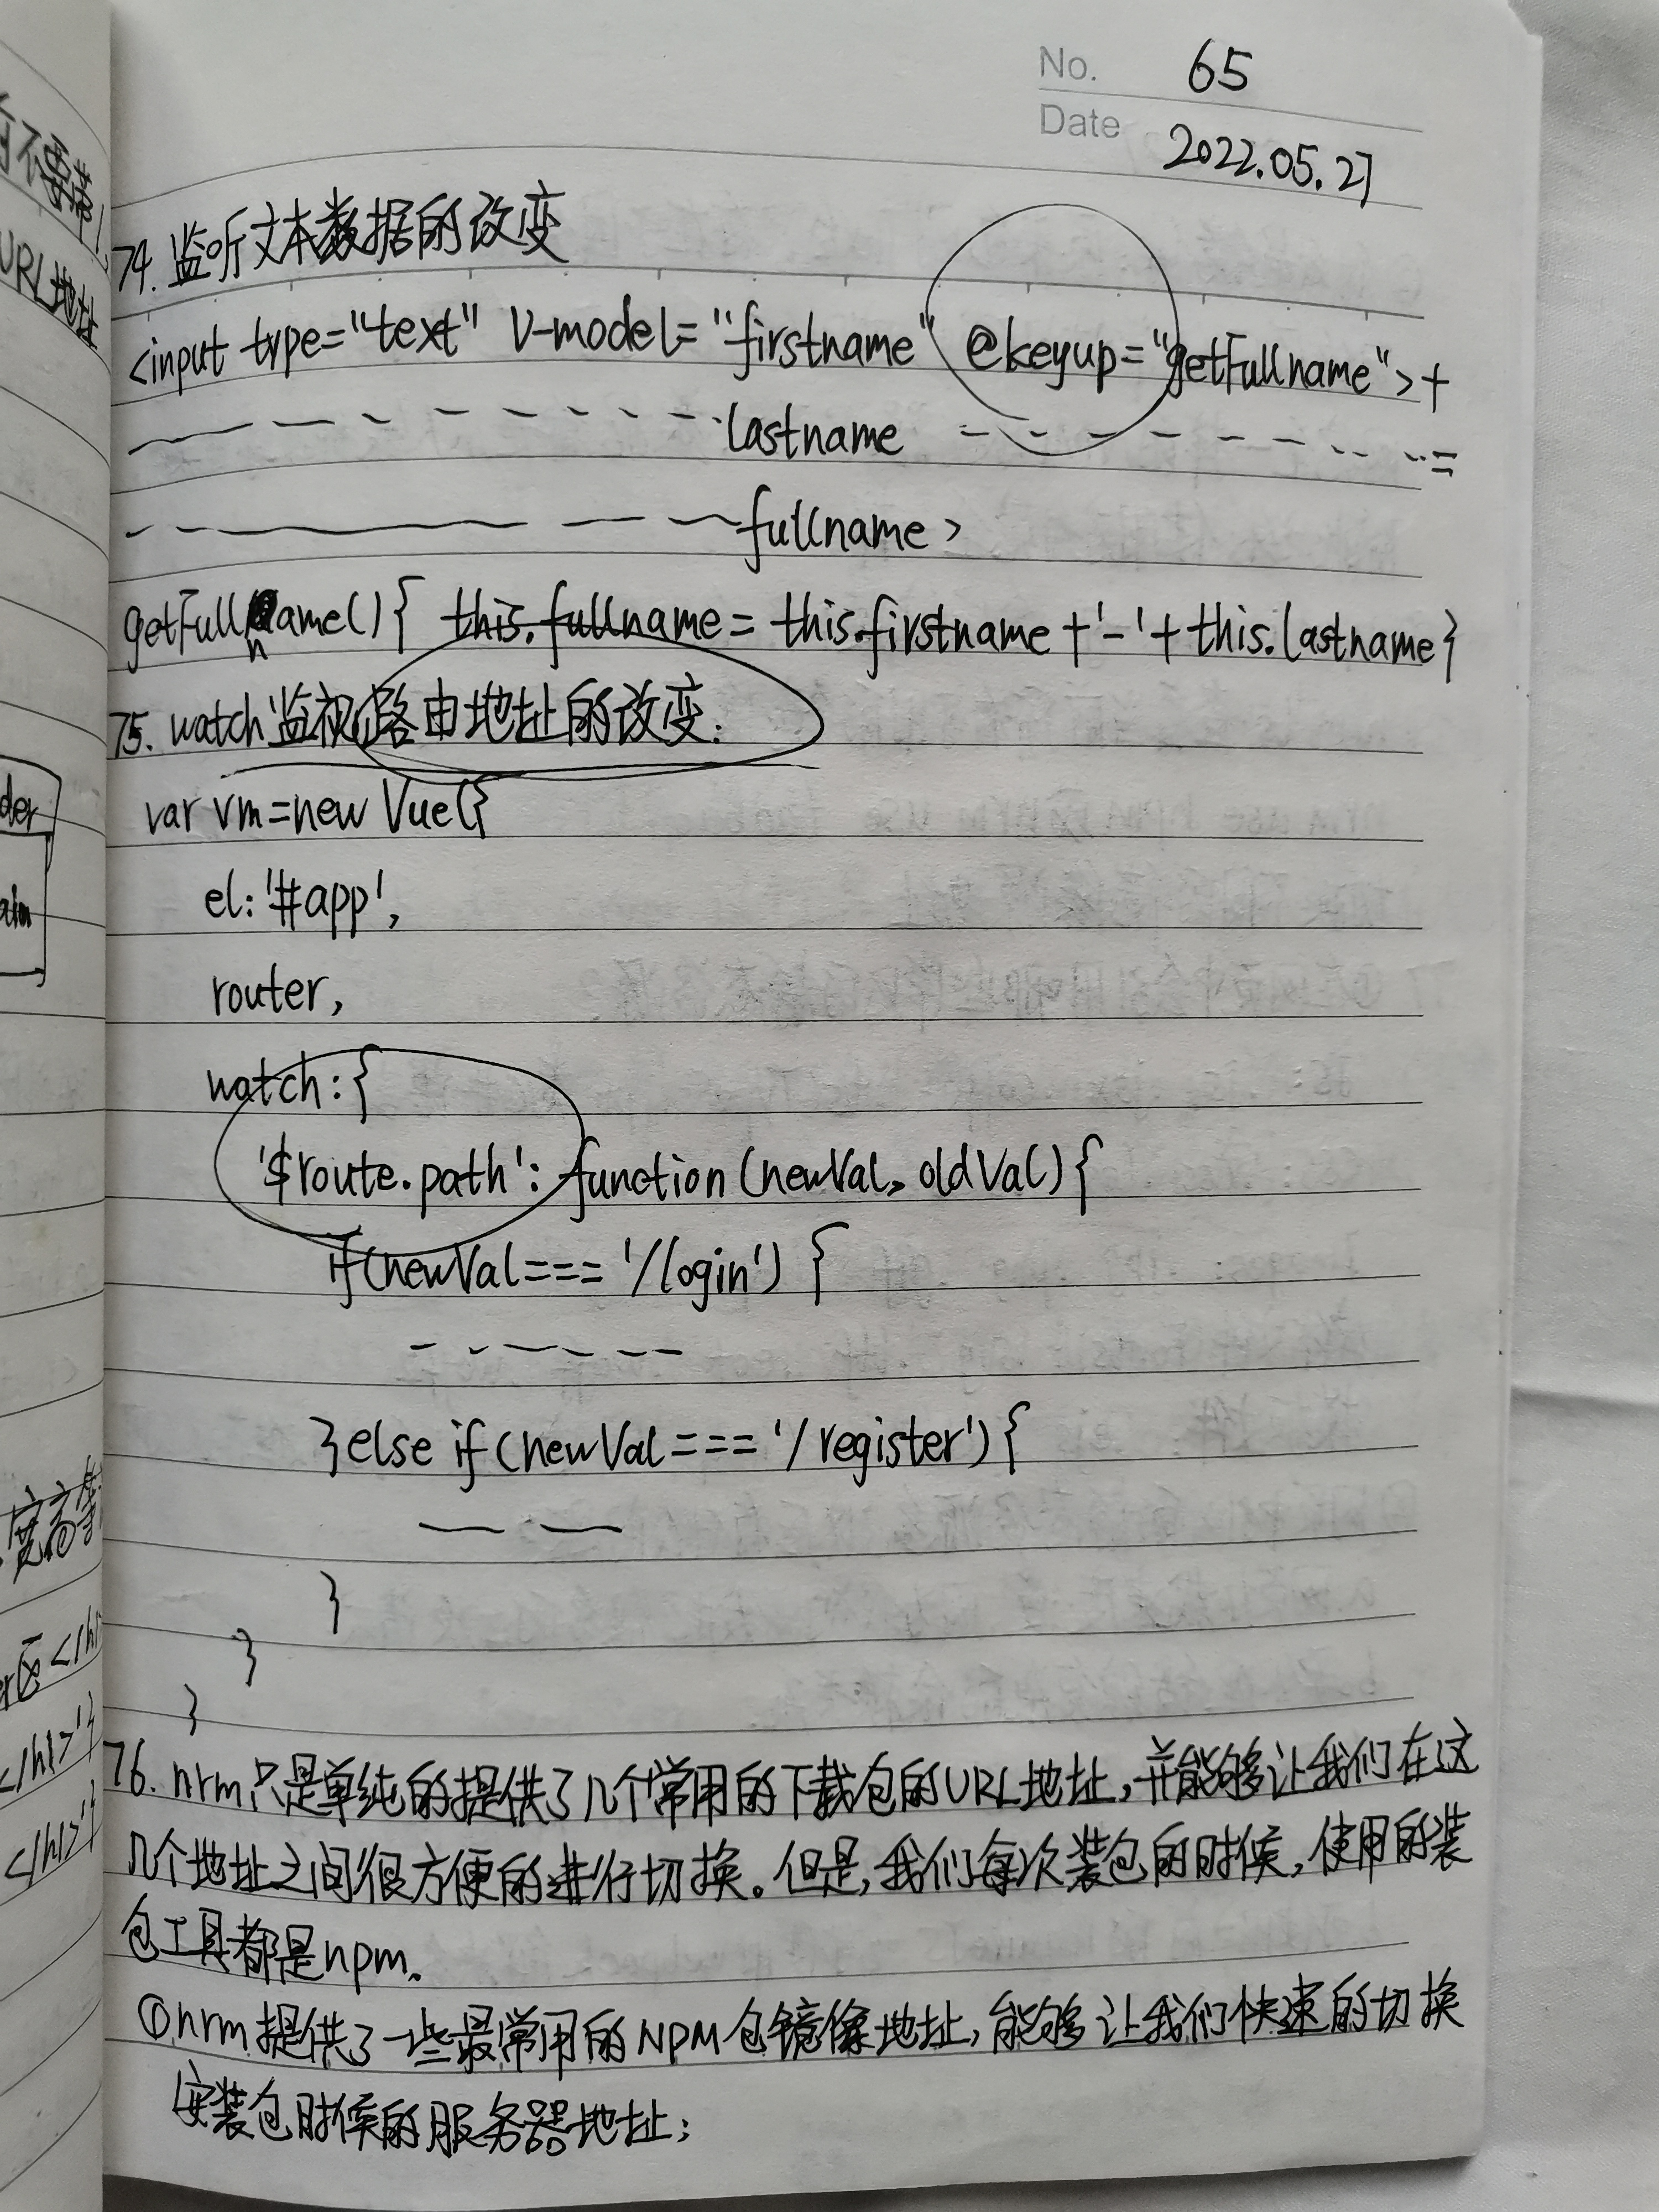 No. 65
Date 2022.05.27
74. 监听文本数据的改变
<input type="text" v-model="firstname" @keyup="getFullname">+
lastname =
fullname >
getFullname(){ this.fullname = this.firstname +'-'+ this.lastname}
75. watch监视路由地址的改变:
var vm=new Vue({
el:'#app',
router,
watch:{
'$route.path': function(newVal, oldVal){
if(newVal==='/login') {
}else if(newVal==='/register'){
}
}
}
76. nrm只是单纯的提供了几个常用的下载包的URL地址,并能够让我们在这
几个地址之间很方便的进行切换。但是,我们每次装包的时候,使用的装
包工具都是npm。
①nrm提供了一些最常用的NPM包镜像地址,能够让我们快速的切换
安装包时候的服务器地址;
URL地址
der
ain
度高等
区</h1
</h1>'}
</h1>'}